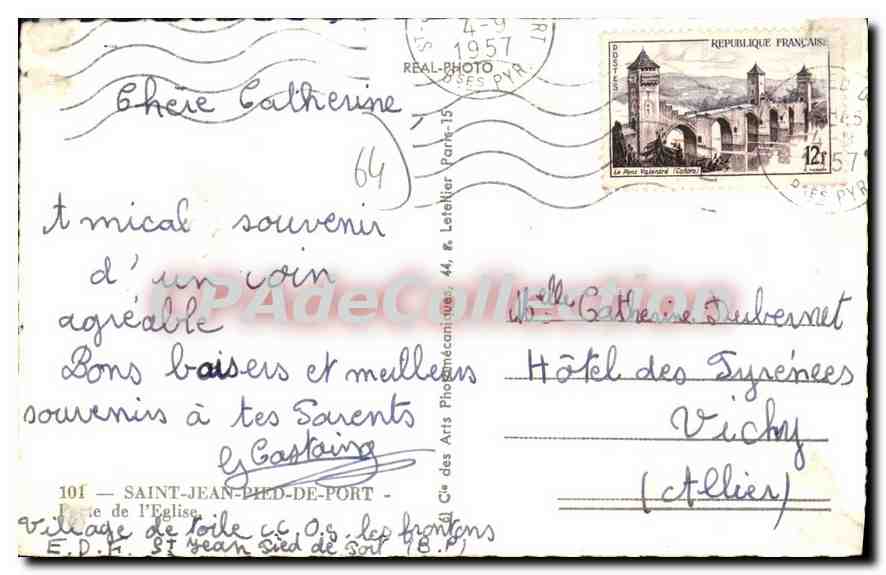 ST-J
4-9
1957
PORT
BSES PYR.
REAL-PHOTO
REPUBLIQUE FRANÇAISE
POSTES
12f
Le Pont Valentré (Cahors)
4-9
1957
BSES PYR
Chère Catherine
64
Amical souvenir
d'un coin
agréable
Bons baisers et meilleurs
souvenirs à tes Parents
G Castaing
101 — SAINT-JEAN-PIED-DE-PORT -
Porte de l'Eglise
Village de toile C.C.O.S. les frontons
E.D.F. St Jean Pied de Port (B.P)
Cie des Arts Photomécaniques, 44, r. Letellier Paris-15
Melle Catherine Dubernet
Hôtel des Pyrénées
Vichy
(Allier)
CPAdeCollection